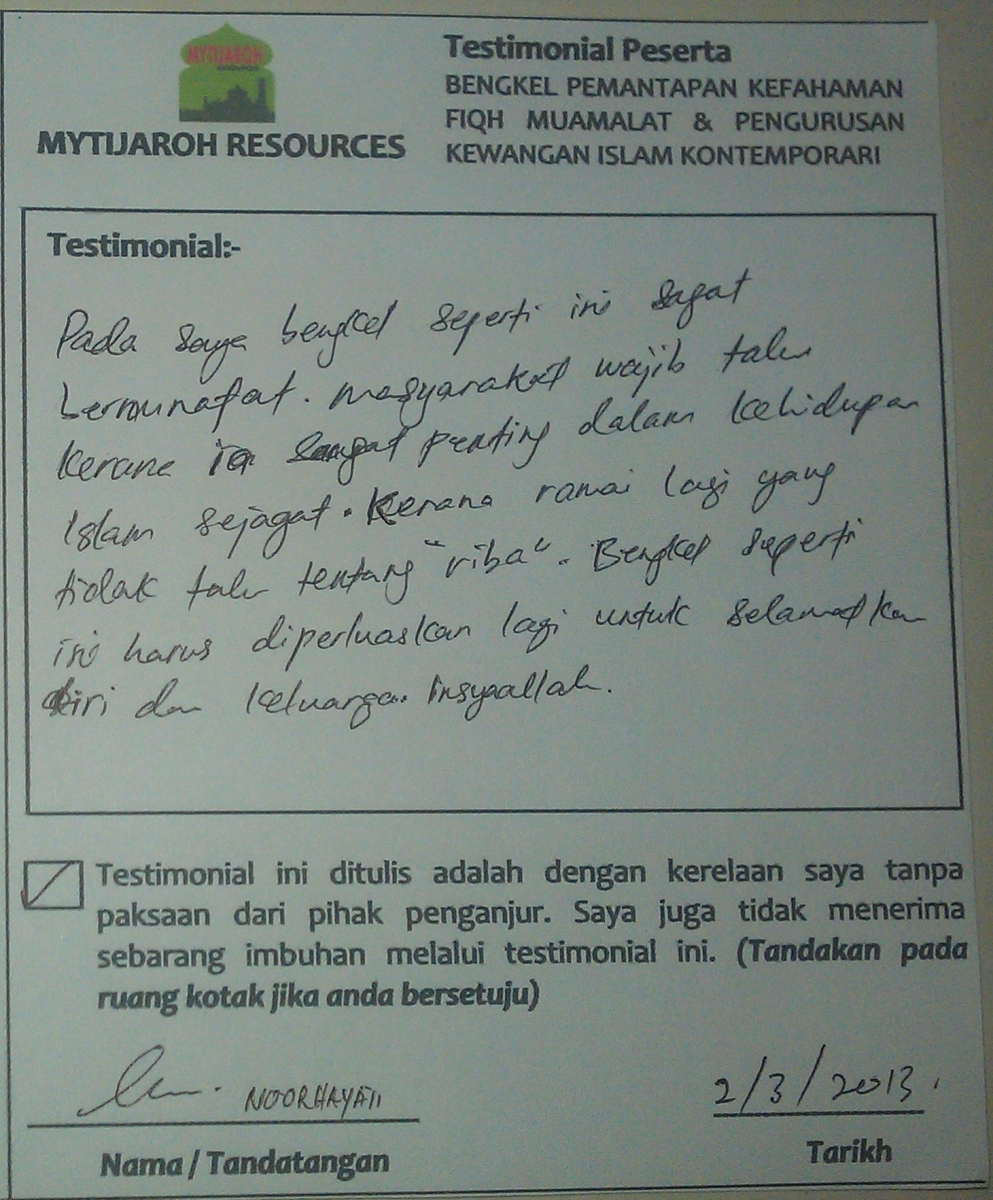 MYTIJAROH
RESOURCES
MYTIJAROH RESOURCES
Testimonial Peserta
BENGKEL PEMANTAPAN KEFAHAMAN
FIQH MUAMALAT & PENGURUSAN
KEWANGAN ISLAM KONTEMPORARI
Testimonial:-
Pada saya bengkel seperti ini sagat
bermunafat. masyarakat wajib tahu
kerana ia sangat penting dalam kehidupan
Islam sejagat. Kerana ramai lagi yang
tidak tahu tentang "riba". Bengkel seperti
ini harus diperluaskan lagi untuk selamatkan
diri dan keluarga. Insyaallah.
Testimonial ini ditulis adalah dengan kerelaan saya tanpa
paksaan dari pihak penganjur. Saya juga tidak menerima
sebarang imbuhan melalui testimonial ini. (Tandakan pada
ruang kotak jika anda bersetuju)
NOORHAYATI
2/3/2013.
Nama / Tandatangan
Tarikh